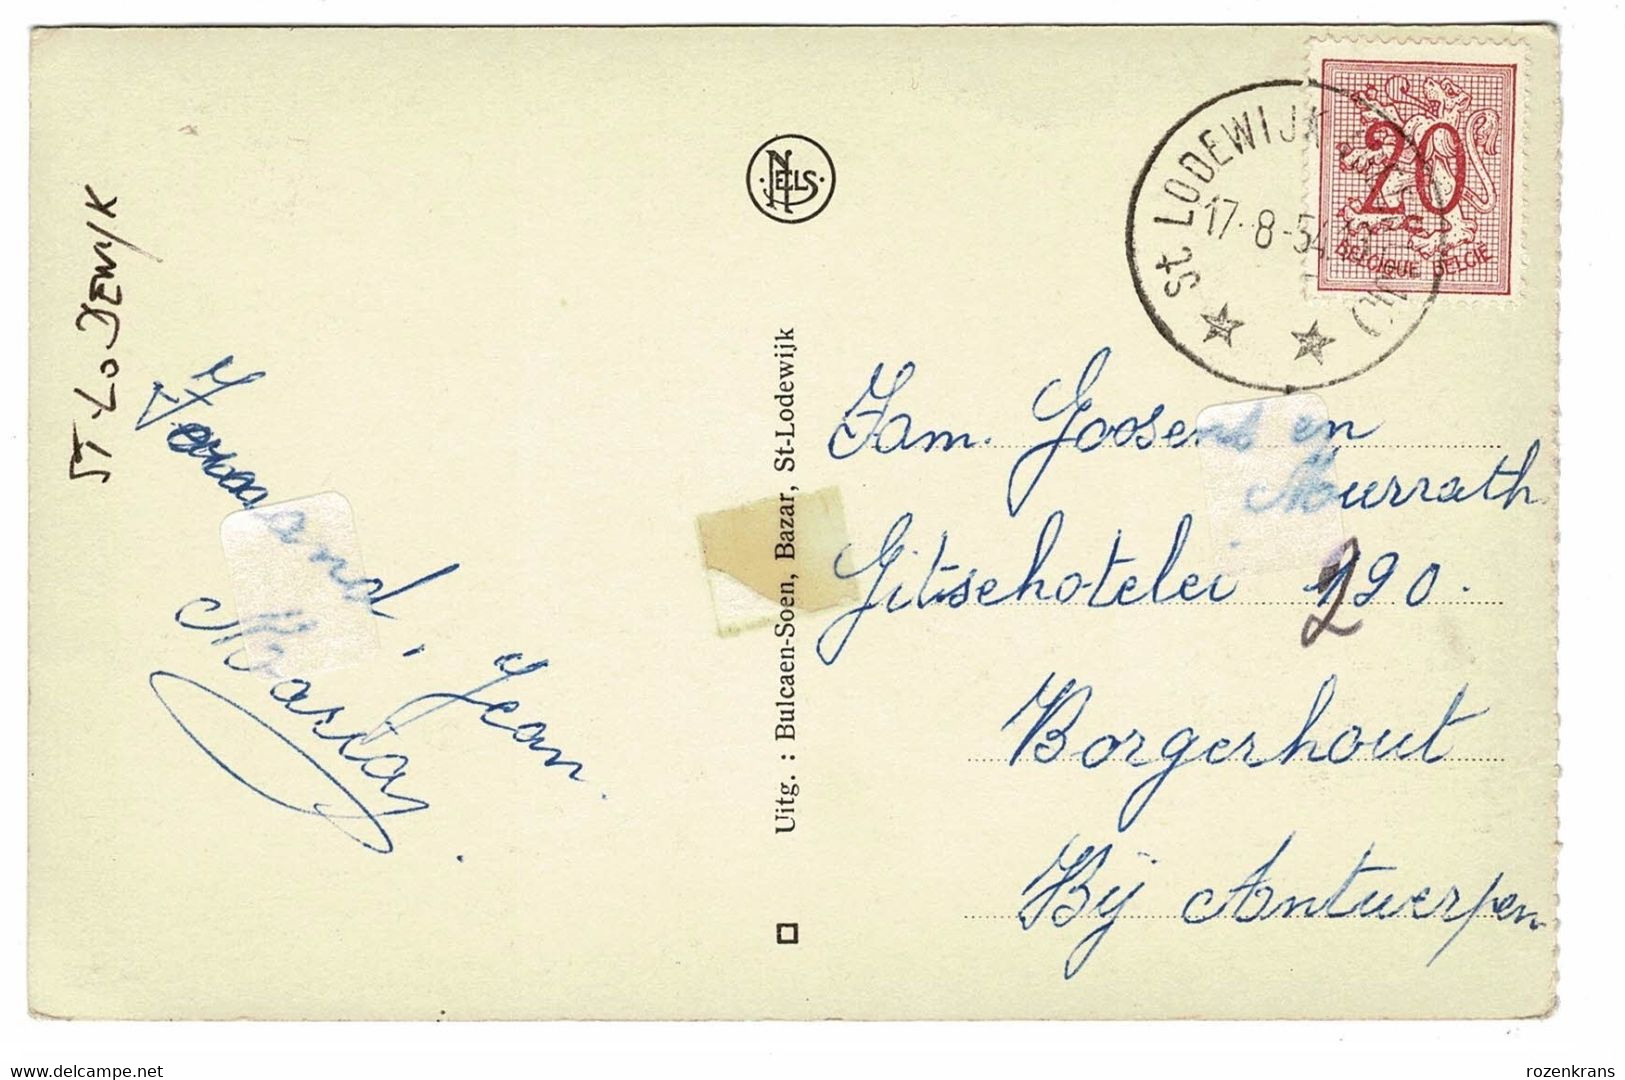 ST. LODEWIJK
Fernand, Jean
Maria.
NELS
Uitg. : Bulcaen-Soen, Bazar, St-Lodewijk
St LODEWIJK
17-8-54
20
BELGIQUE BELGIË
Fam. Goosens en
Murrath
Gitschotelei 190.
2
Borgerhout
Bij Antwerpen
www.delcampe.net
rozenkrans